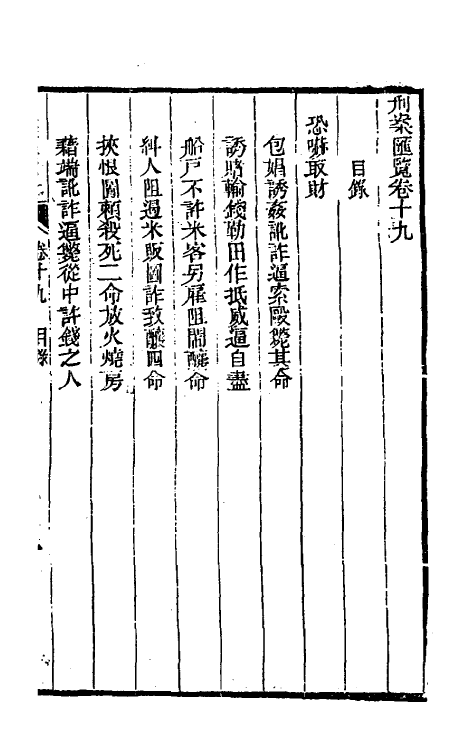 刑案匯覽卷十九
目錄
恐嚇取財
包娼誘姦訛詐逼索毆斃其命
誘賭輸錢勒田作抵威逼自盡
船戶不許米客另雇阻鬧釀命
糾人阻遏米販圖詐致釀四命
挾恨圖賴殺死二命放火燒房
藉端訛詐逼斃從中許錢之人
卷十九 目錄